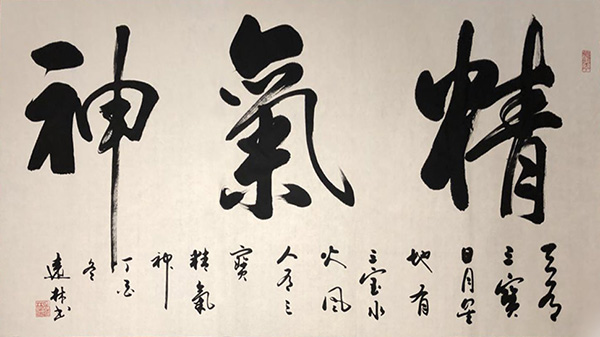 精氣神
天有
三寶
日月星
地有
三宝水
火風
人有三
寶
精氣
神
丁酉
冬
林书